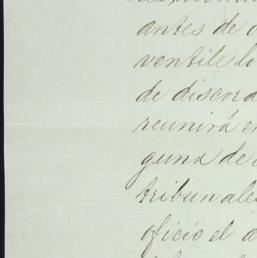 antes de
ventile lo
de discord
reunirá en
guna de
tribunales
oficio el